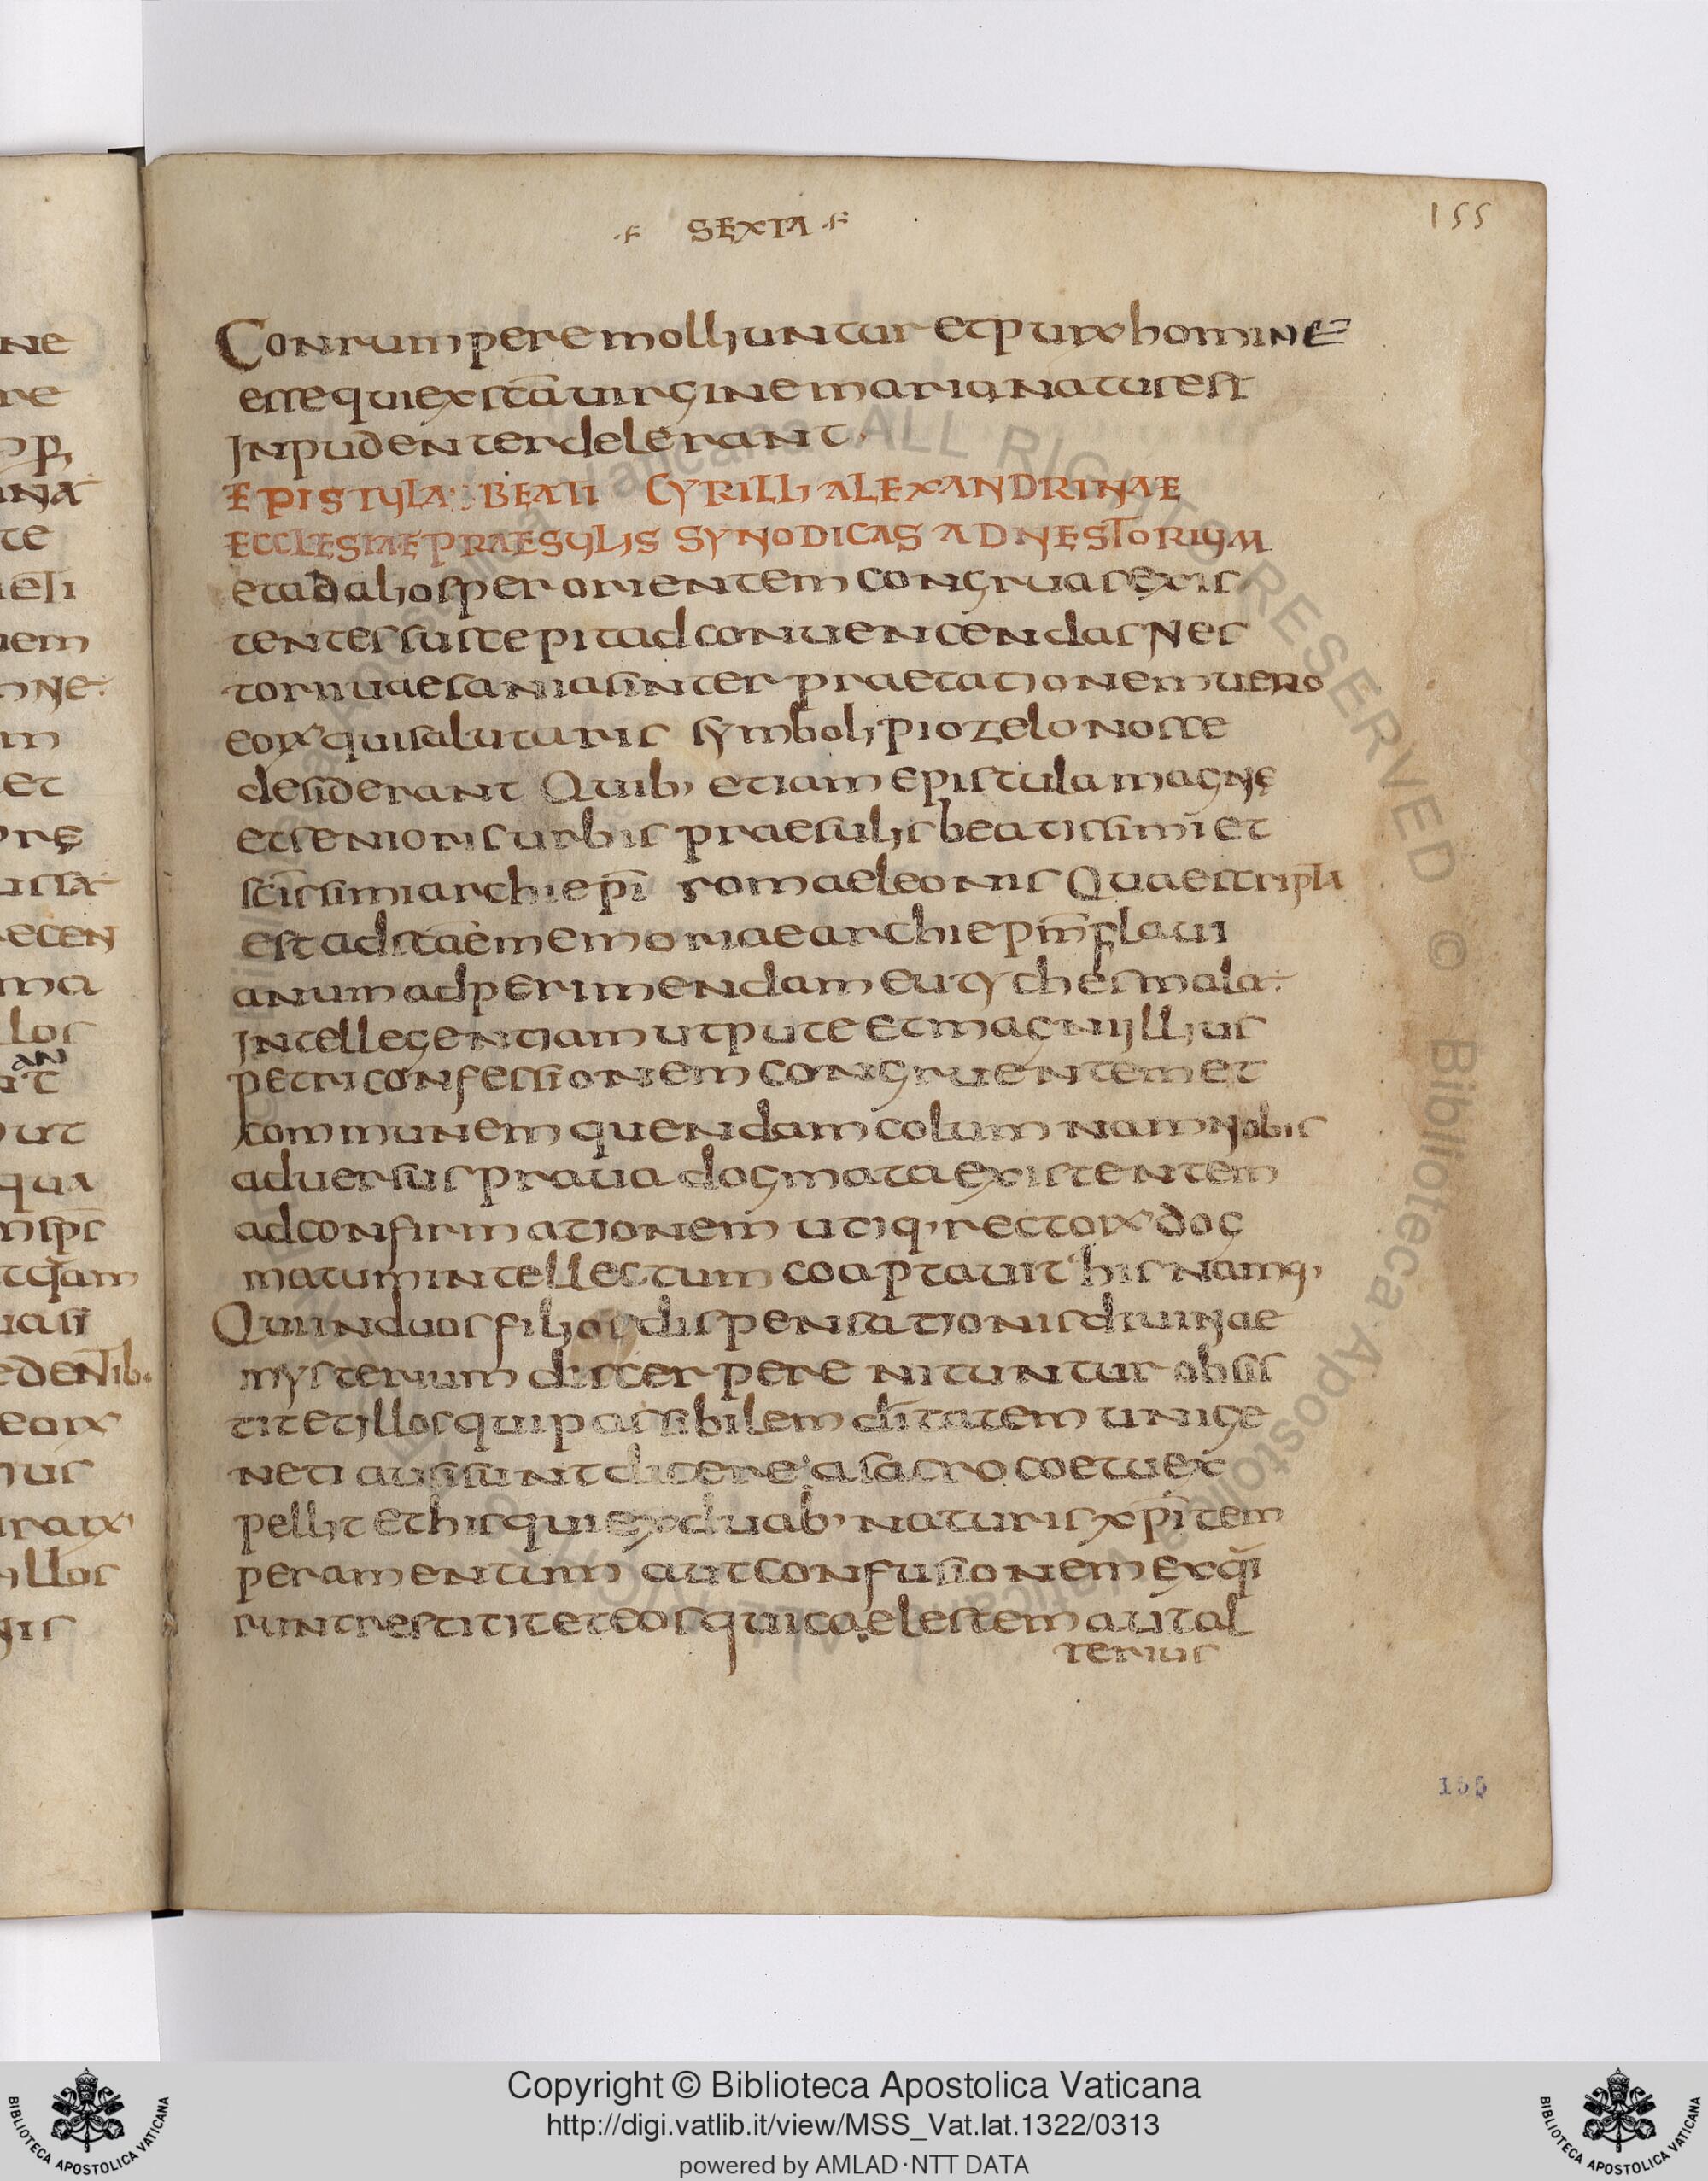 SEXTA
155
Conrumpere molliuntur et purū homine
esse qui ex sc̄a uirgine maria natus est
Inpudenter delerant.
EPISTULA BEATI CYRILLI ALEXANDRINAE
ECCLESIAE PRAESULIS SYNODICAS AD NESTORIUM
et ad alios per orientem congruas exis
tentes suscepit ad conuencendas Nes
torii uaesanias inter praetationem uero
eorum qui salutaris symboli pio zelo nosse
desiderant Quib, etiam epistula magnę
et senioris urbis praesulis beatissimi et
sc̄issimi archiep̄i romae leonis Quae scripta
est ad sc̄ae memoriae archiep̄m flaui
anum ad perimendam eutyches mala
Intellegentiam utpute et magni Illius
petri confessionem congruentem et
communem quendam columnam Nobis
aduersus praua dogmata existentem
ad confirmationem utiq, rectorum dog
matum intellectum coaptauit his namq,
Qui in duos filios dispensationis diuinae
mysterium discerpere nituntur obsis
tit et Illos qui passibilem diïtatem unige
neti ausi sunt dicere a sacro coetu ex
pellit et his qui ex duab, naturis xp̄i tem
peramentum aut confusionem exq̄i
runt restitit et eos qui caelestem aut al
terius
155
ne
re
te
uem
m
et
ma
llos
an
ut
qua
quam
uasi
edentib.
llos
Copyright © Biblioteca Apostolica Vaticana
http://digi.vatlib.it/view/MSS_Vat.lat.1322/0313
powered by AMLAD·NTT DATA
BIBLIOTECA APOSTOLICA VATICANA
BIBLIOTECA APOSTOLICA VATICANA